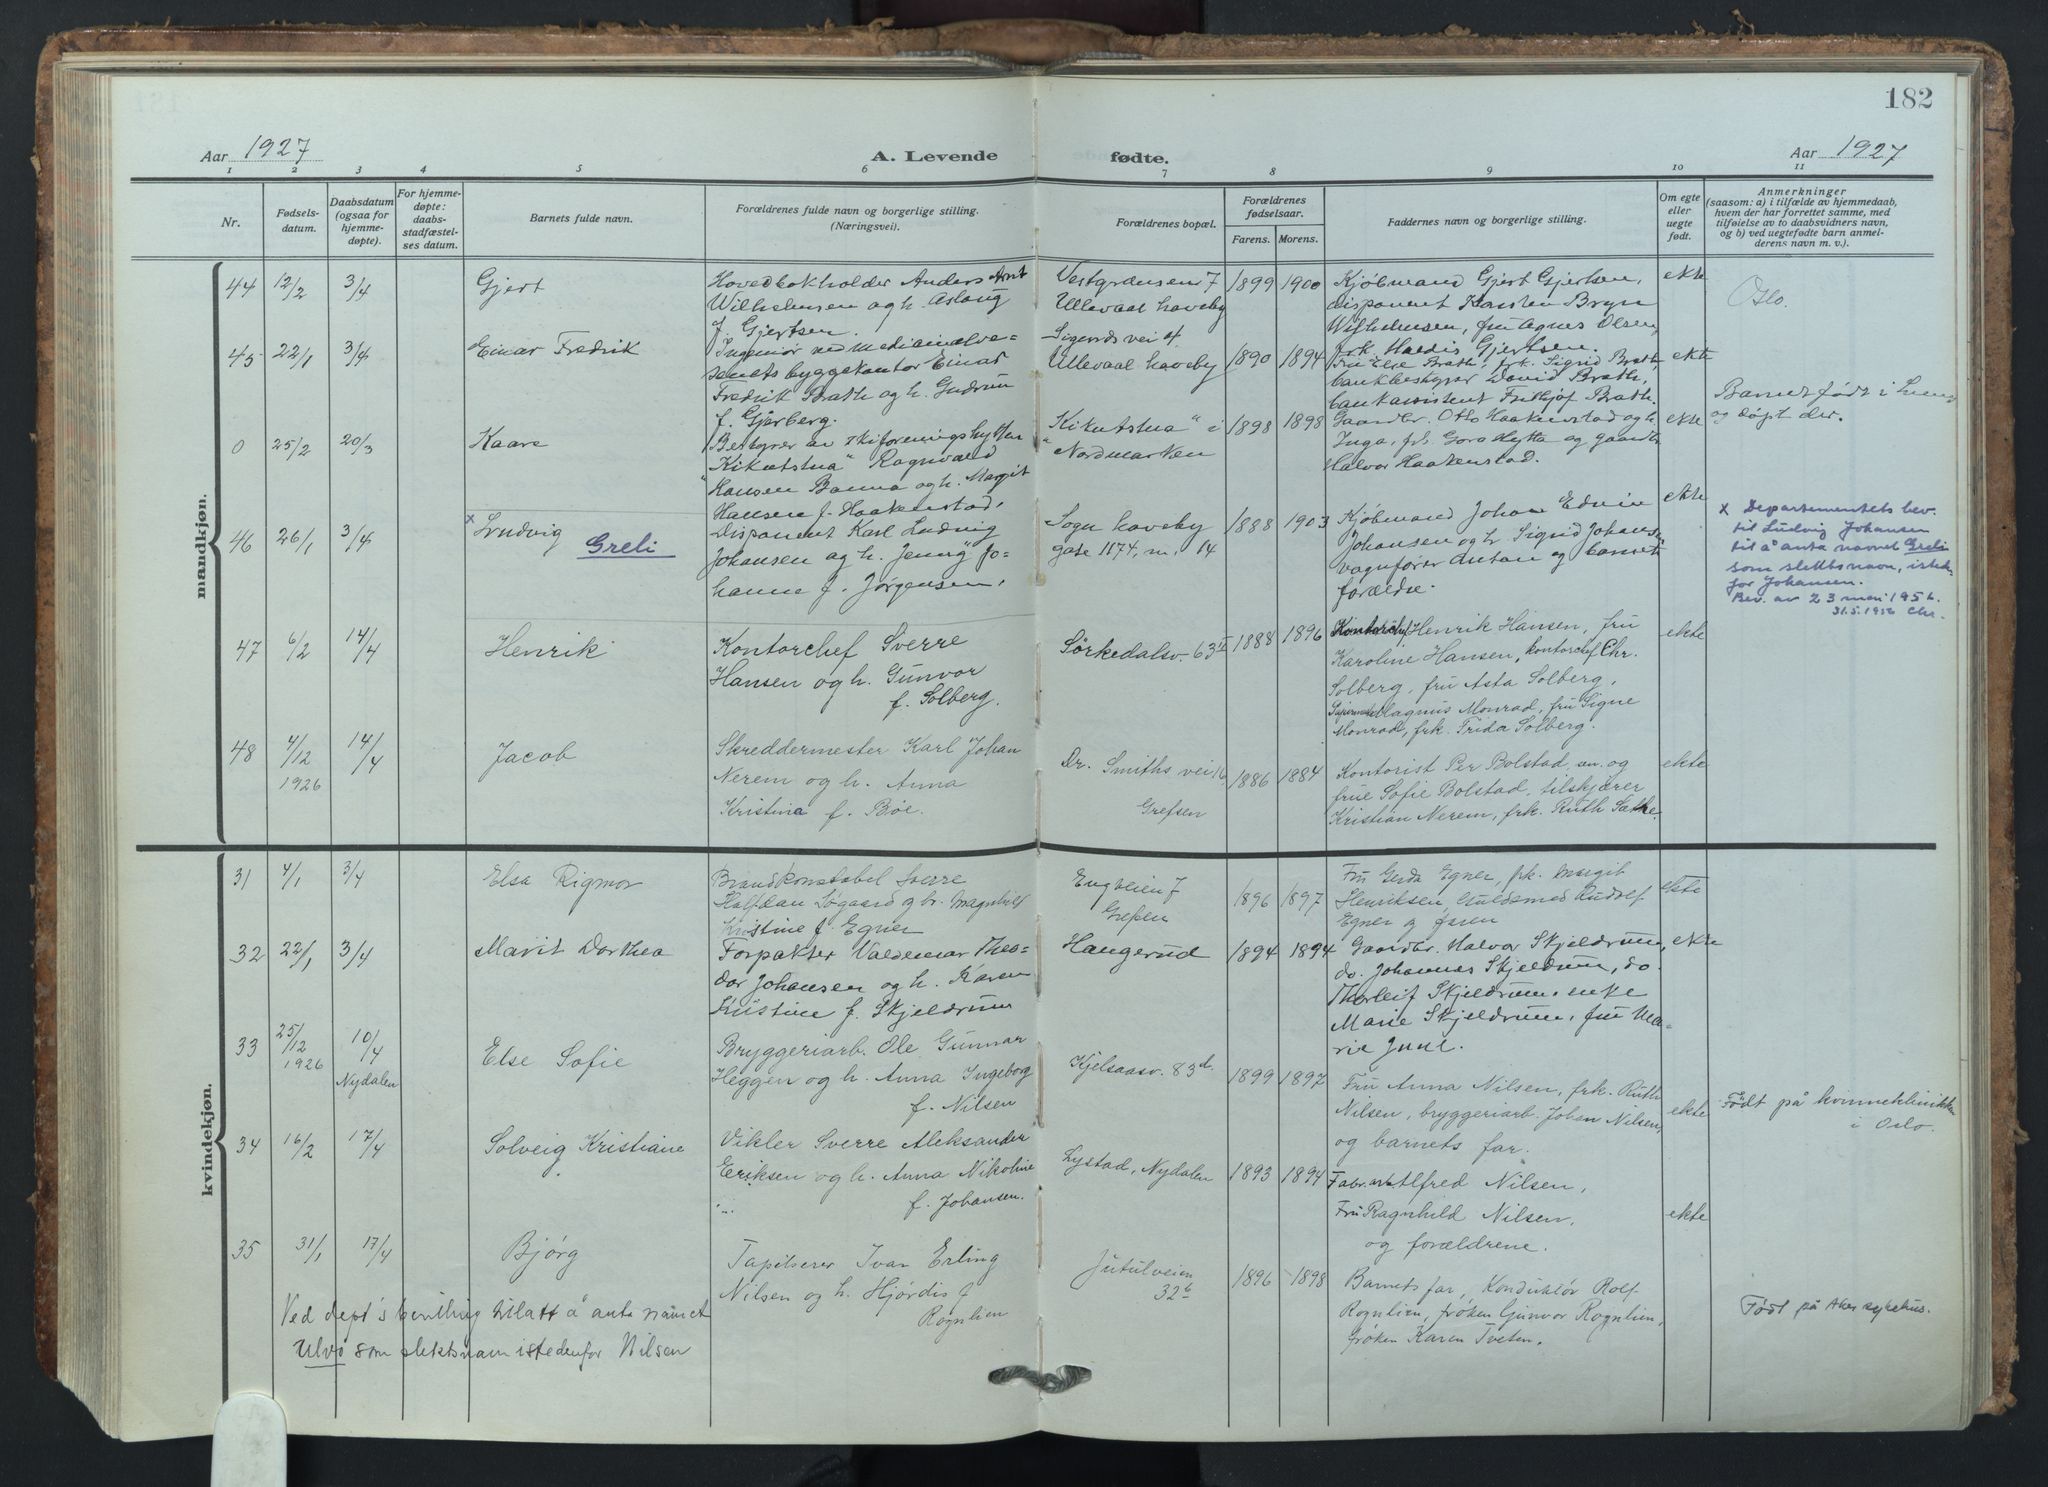 182
Aar 1927
A. Levende fødte.
Aar 1927
1 2 3 4 5 6 7 8 9 10 11
Nr.
Fødsels-
datum.
Daabsdatum
(ogsaa for
hjemme-
døpte).
For hjemme-
døpte:
daabs-
stadfæstel-
ses datum.
Barnets fulde navn.
Forældrenes fulde navn og borgerlige stilling.
(Næringsvei).
Forældrenes bopæl.
Forældrenes
fødselsaar.
Farens. Morens.
Faddernes navn og borgerlige stilling.
Om egte
eller
uegte
født.
Anmerkninger
(saasom: a) i tilfælde av hjemmedaab,
hvem der har forrettet samme, med
tilføielse av to daabsvidners navn,
og b) ved uegtefødte barn anmel-
derens navn m. v.).
mandkjøn.
44 12/2 3/4 Gjert
Hovedbokholder Anders Arnt
Wilhelmsen og h. Aslaug
f. Gjertsen.
Vestgrænsen 7
Ullevaal haveby
1899 1900
Kjøbmand Gjert Gjertsen,
disponent Karsten Bryn
Wilhelmsen, fru Agnes Olsen,
frk. Haldis Gjertsen.
ekte
Oslo.
45 22/1 3/4 Einar Fredrik
Ingeniør ved medicinalve-
senets byggekontor Einar
Fredrik Brath og h. Gudrun
f. Gjerberg.
Sigurds vei 4.
Ullevaal haveby
1890 1894
Fru Else Brath, frk. Sigrid Brath,
bankbestyrer David Brath,
bankassistent Fridtjof Brath.
ekte
0 25/2 20/3 Kaare
Bestyrer av skiforeningshytten
"Kikutstua" Ragnvald
Hansen Banna og h. Margit
Hansen f. Haakenstad.
"Kikutstua" i
Nordmarken
1898 1898
Gaardbr. Otto Haakenstad og h.
Inga, frk. Gora Hytta og gaardbr.
Halvor Haakenstad.
ekte
Barnet født i
og døpt der.
46 26/1 3/4 x Ludvig Greli
Disponent Karl Ludvig
Johansen og h. Jenny Jo-
hanne f. Jørgensen.
Sogn haveby
gate 1174, nr. 14
1888 1903
Kjøbmand Johan Edvin
Johansen og h. Sigrid Johansen,
vognfører Anton og barnets
forældre.
ekte
x Departementets bev.
til Ludvig Johansen
til å anta navnet Greli
som slektsnavn, isteden-
for Johansen.
Bev. av 23 mai 1956.
31.5.1956 Chr.
47 6/2 14/4 Henrik
Kontorchef Sverre
Hansen og h. Gunvor
f. Solberg.
Sörkedalsv. 63 II
1888 1896
Kontorchef Henrik Hansen, fru
Karoline Hansen, kontorchef Chr.
Solberg, fru Asta Solberg,
Magnus Monrad, fru Signe
Monrad, frk. Frida Solberg.
ekte
48 4/12 1926 14/4 Jacob
Skreddermester Karl Johan
Nerem og h. Anna
Kristina f. Bøe.
Dr. Smiths vei 16
Grefsen
1886 1884
Kontorist Per Bolstad, sn. og
frue Sofie Bolstad, tilskjærer
Kristian Nerem, frk. Ruth Sætre.
ekte
kvindekjøn.
31 4/1 3/4 Elsa Rigmor
Brandkonstabel Sverre
Halfdan Søgaard og h. Magnhild
Kristine f. Egner
Engveien 7
Grefsen
1896 1897
Fru Gerda Egner, frk. Margit
Henriksen, Guldsmed Rudolf
Egner og faren
ekte
32 22/1 3/4 Marit Dorthea
Forpakter Valdemar Theo-
dor Johansen og h. Karen
Kristine f. Skjeldrum
Haugerud
1894 1894
Gaardbr. Halvor Skjeldrum,
do. Johannes Skjeldrum, do.
Thorleif Skjeldrum, enke
Marie Skjeldrum, fru Ma-
rie Juul.
ekte
33 25/12 1926 10/4 Nydalen Else Sofie
Bryggeriarb. Ole Gunnar
Heggen og h. Anna Ingeborg
f. Nilsen
Kjelsaasv. 83 d.
1899 1897
Fru Anna Nilsen, frk. Ruth
Nilsen, bryggeriarb. Johan Nilsen,
og barnets far.
ekte
Født på kvinneklinikken
i Oslo.
34 16/2 17/4 Solveig Kristiane
Vikler Sverre Aleksander
Eriksen og h. Anna Nikoline
f. Johansen.
Lystad, Nydalen
1893 1894
Fabr.arb. Alfred Nilsen,
Fru Ragnhild Nilsen,
og forældrene.
ekte
35 31/1 17/4 Bjørg
Tapetserer Ivar Erling
Nilsen og h. Hjørdis f
Rognlien
Jutulveien
32 b
1896 1898
Barnets far, Konduktør Rolf
Rognlien, frøken Gunvor Rognlien,
frøken Karen Tveten.
Født på Aker sykehus.
Ved dept's bevilling tillatt å anta navnet
Ulvø som slektsnavn istedenfor Nilsen